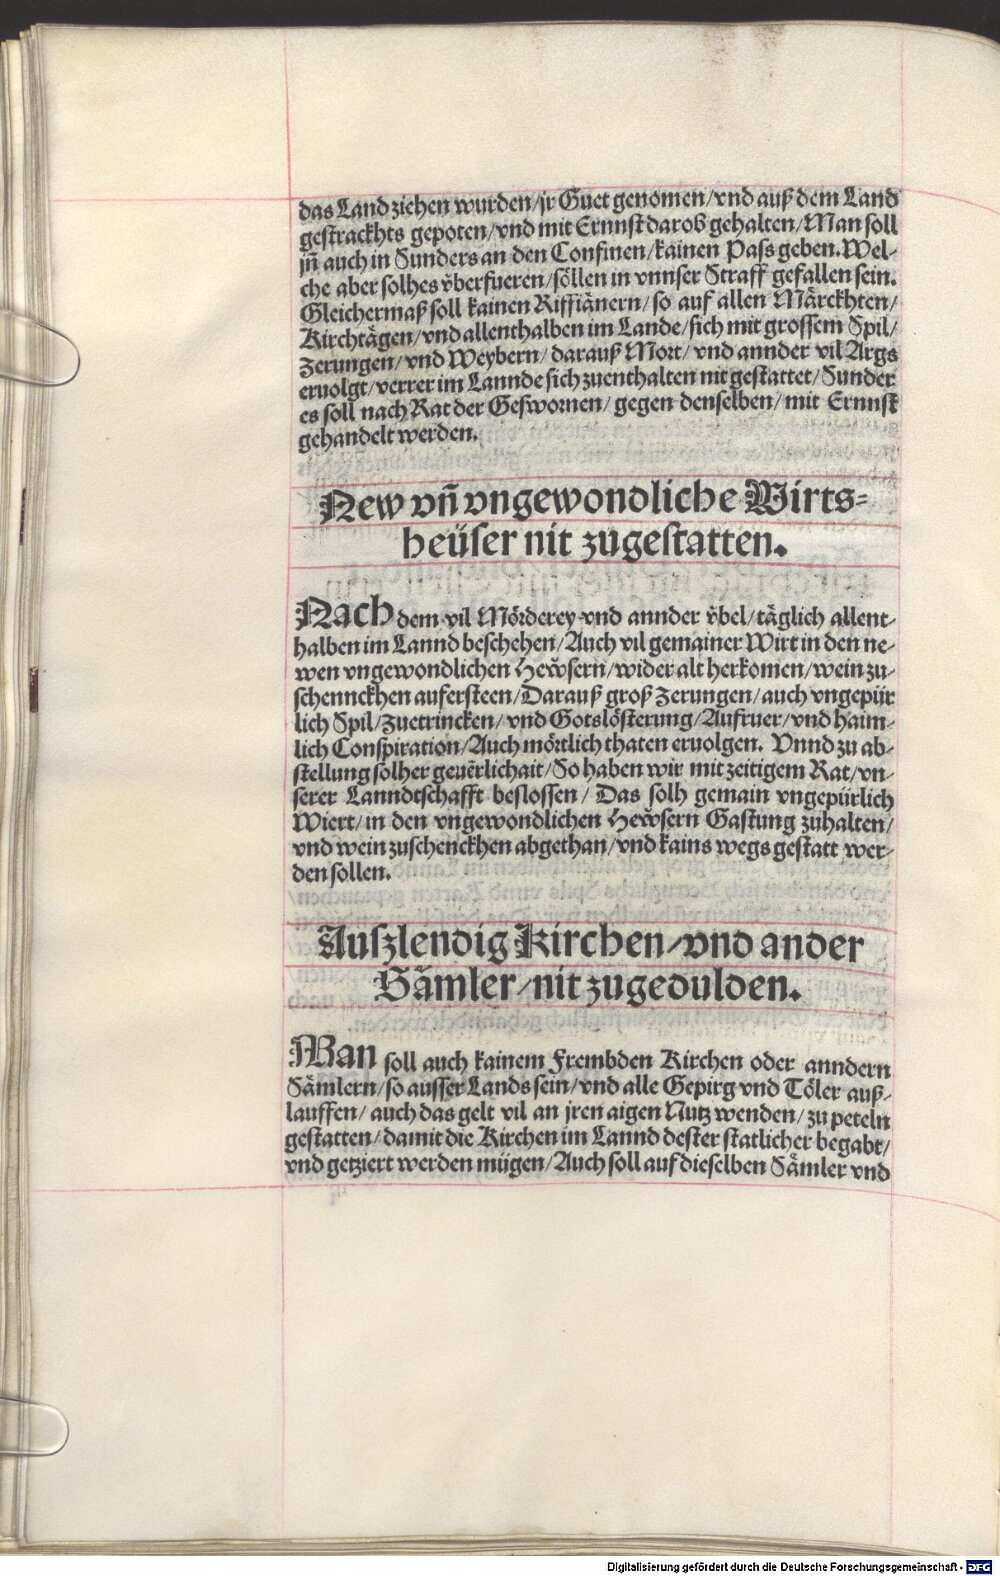 das Land ziehen wurden/jr Guet genomen/vnd auß dem Land
gestrackhts gepoten/vnd mit Ernnst darob gehalten/Man soll
jn̄ auch in Sunders an den Confinen/kainen Pass geben.Wel-
che aber solhes v̈berfueren/söllen in vnnser Straff gefallen sein.
Gleichermaß soll kainen Riffiänern/so auf allen Märckhten/
Kirchtägen/vnd allenthalben im Lande/sich mit grossem Spil/
Zerungen/vnd Weybern/darauß Mort/vnd annder vil Args
eruolgt/verrer im Lannde sich zuenthalten nit gestattet/Sunder
es soll nach Rat der Geswornen/gegen denselben/mit Ernnst
gehandelt werden.
New vn̄ vngewondliche Wirts-
heüser nit zugestatten.
Nach dem vil Mörderey vnd annder v̈bel/täglich allent-
halben im Lannd beschehen/Auch vil gemainer Wirt in den ne-
wen vngewondlichen Hew̋sern/wider alt herkomen/wein zu-
schennckhen aufersteen/Darauß groß Zerungen/auch vngepür
lich Spil/Zuetrincken/vnd Gotslösterung/Aufruer/vnd haim-
lich Conspiration/Auch mörtlich thaten eruolgen. Vnnd zu ab-
stellung solher geuērlichait/So haben wir mit zeitigem Rat/vn-
serer Lanndtschafft beslossen/Das solh gemain vngepürlich
Wiert/in den vngewondlichen Hew̋sern Gastung zuhalten/
vnd wein zuschenckhen abgethan/vnd kains wegs gestatt wer-
den sollen.
Auszlendig Kirchen/vnd ander
Sämler/nit zugedulden.
Man soll auch kainem Frembden Kirchen oder anndern
Sämlern/so ausser Lands sein/vnd alle Gepirg vnd Töler auß-
lauffen/auch das gelt vil an jren aigen Nutz wenden/zu peteln
gestatten/damit die Kirchen im Lannd dester statlicher begabt/
vnd getziert werden mügen/Auch soll auf dieselben Sämler vnd
Digitalisierung gefördert durch die Deutsche Forschungsgemeinschaft - DFG